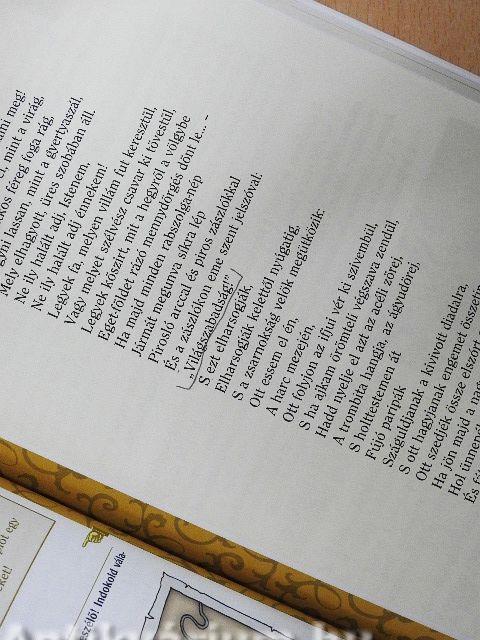 meg!
mint a virág,
féreg foga rág,
lassan, mint a gyertyaszál,
Mely elhagyott, üres szobában áll.
Ne ily halált adj, Istenem,
Ne ily halált adj énnekem!
Legyek fa, melyen villám fut keresztül,
Vagy melyet szélvész csavar ki tövestül,
Legyek kőszirt, mit a hegyről a völgybe
Eget-földet rázó mennydörgés dönt le... –
Ha majd minden rabszolga-nép
Jármát megunva síkra lép
Pirosló arccal és piros zászlókkal
És a zászlókon eme szent jelszóval:
„Világszabadság!”
S ezt elharsogják,
Elharsogják kelettől nyúgatig,
S a zsarnokság velök megütközik:
Ott essem el én,
A harc mezején,
Ott folyjon az ifjui vér ki szívembül,
S ha ajkam örömteli végszava zendül,
Hadd nyelje el azt az acéli zörej,
A trombita hangja, az ágyudörej
S holttestemen át
Fújó paripák
Száguldjanak a kivívott diadalra.
S ott hagyjanak engemet
Ott szedjék össze elszórt
Ha jön majd a nagy
Hol ünnepi
És
egy
Indokold